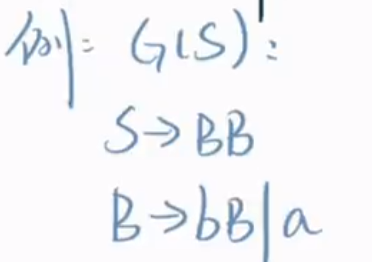 例: G(S):
S→BB
B→bB|a